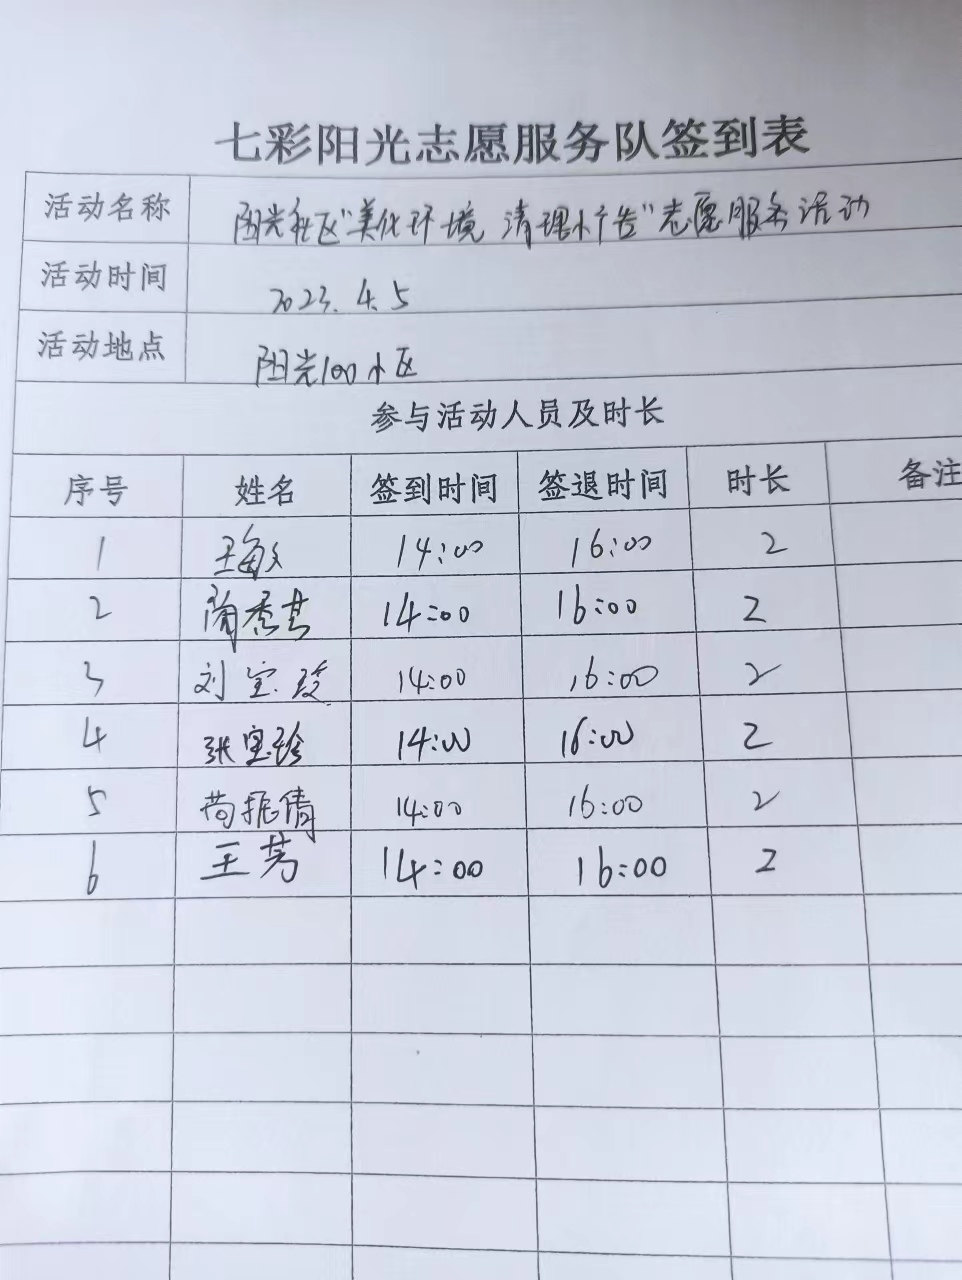 七彩阳光志愿服务队签到表
活动名称 阳光社区"美化环境 清理小广告"志愿服务活动
活动时间 2023.4.5
活动地点 阳光100小区
参与活动人员及时长
序号 姓名 签到时间 签退时间 时长 备注
1 王敏 14:00 16:00 2
2 陶秀其 14:00 16:00 2
3 刘宝玲 14:00 16:00 2
4 张宝珍 14:00 16:00 2
5 苟振倩 14:00 16:00 2
6 王芳 14:00 16:00 2